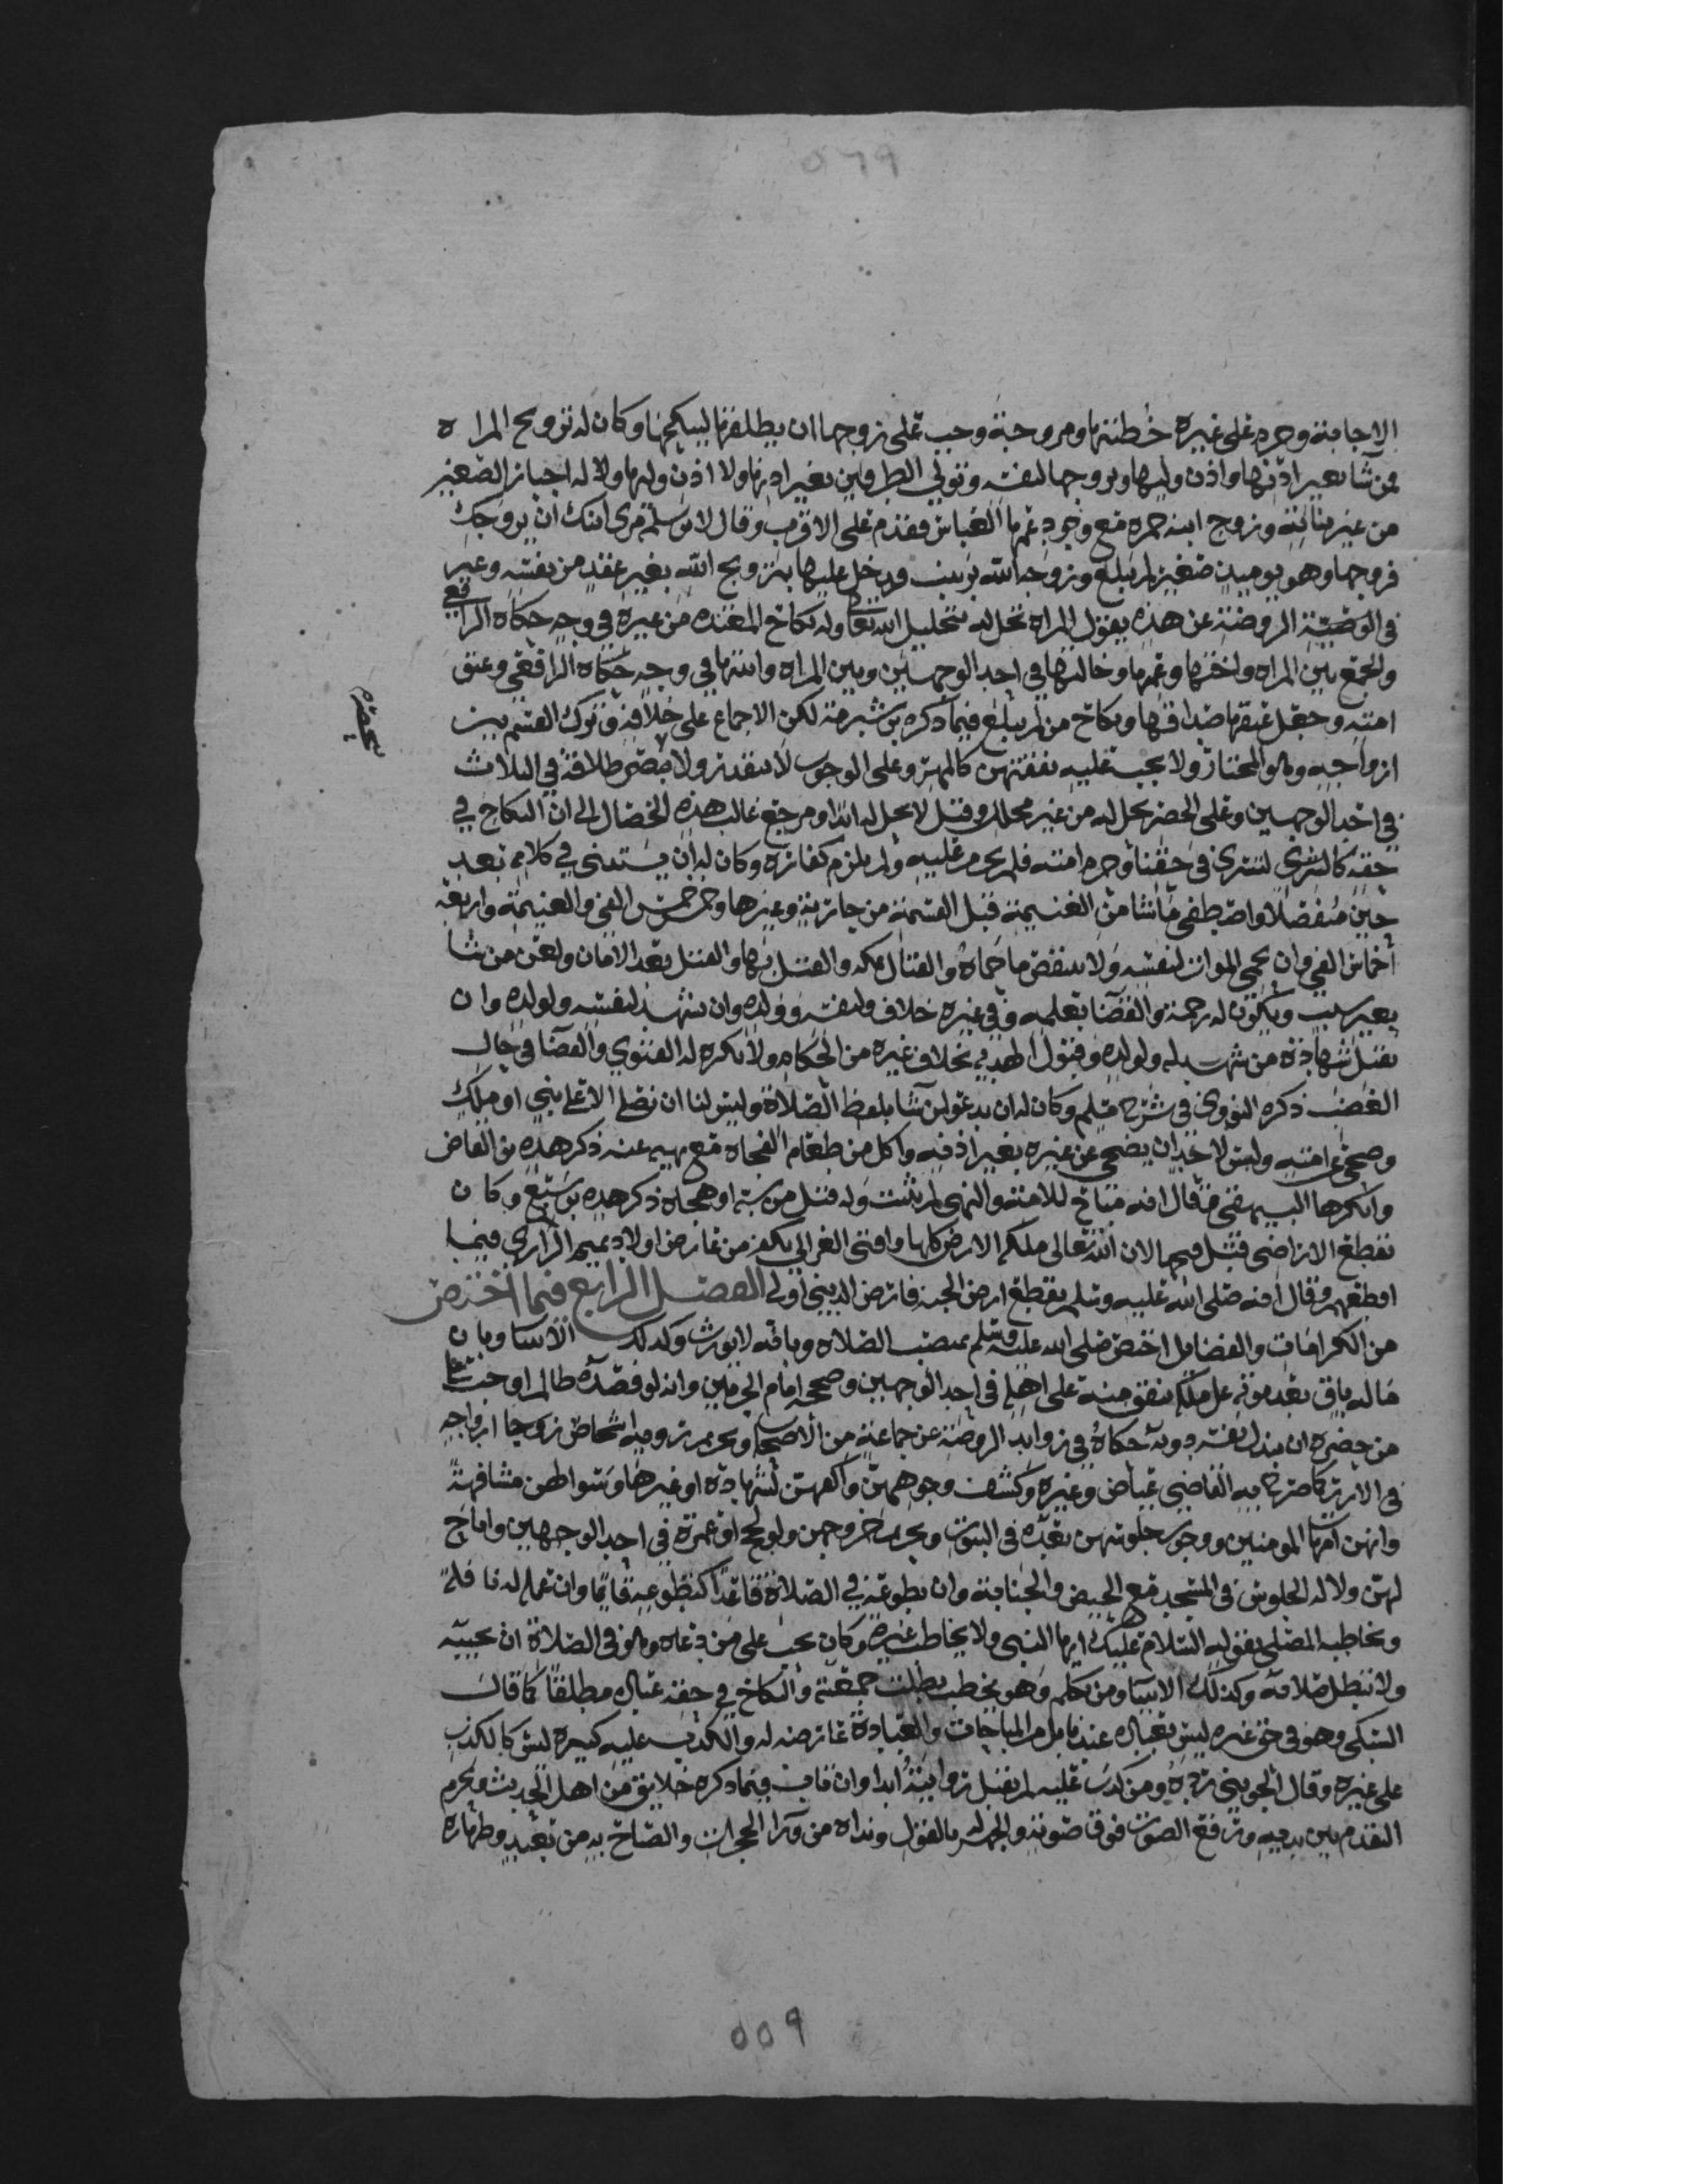 ٥٦٩
الاجابة وحرم على غيره خطبتها ومزوجة وجب على زوجها ان يطلقها لينكحها وكان له تزويج المراه
ممن شا بغير اذنها واذن وليها وتزوجها لنفسه وتولي الطرفين بغير اذنها ولا اذن وليها وله اجبار الصغير
من غير بناته وزوج ابنة حمزه مع وجود عمها العباس فقدم على الاقرب وقال لام سلمة مري ابنك ان يزوجك
فزوجها وهو يوميذ صغير لم يبلغ وزوجه الله بزينب ودخل عليها بتزويج الله بغير عقد من نفسه وعبر
في الروضة عن هذه بقول المراه تحل له بتحليل الله تعالى وله نكاح المعتده من غيره في وجه حكاه الرافعي
والجمع بين المراه واختها وعمتها وخالتها في احد الوجهين وبين المراه وابنتها في وجه حكاه الرافعي وعتق
امته وجعل عتقها صداقها ونكاح من لم تبلغ فيما ذكره بن شبرمة لكن الاجماع على خلافه وترك القسم بين
ازواجه وهو المختار ولا يجب عليه نفقتهن كالمهر وعلى الوجوب لا يتقدر ولا ينحصر طلاقه في الثلاث
في احد الوجهين وعلى الحصر تحل له من غير محلل وقيل لا تحل له ابدا ومرجع غالب هذه الخصال الى ان النكاح في
حقه كالتسري في حقنا وحرم امته فلم تحرم عليه ولم يلزم كفارة وكان له ان يستثني في كلامه بعد
حين منفصلا واصطفى ما شا من الغنيمة قبل القسمة من جارية وغيرها وخمس خمس الفي والغنيمة واربعة
اخماس الفي وان يحمي الموات لنفسه ولا ينقض ما حماه والقتال بمكه والقتل بها والقتل بعد الامان ولعن من شا
بغير سبب ويكون له رحمة والقضا بعلمه وفي غيره خلاف ولنفسه وولده وان يشهد لنفسه ولولده وان
يقبل شهادة من شهد له ولولده وقبول الهديه بخلاف غيره من الحكام ولا يكره له الفتوى والقضا في حال
الغضب ذكره النووي في شرح مسلم وكان له ان يدعو لمن شا بلفظ الصلاة وليس لنا ان نصلي الا على نبي او ملك
وضحى عن امته وليس لاحد ان يضحي عن غيره بغير اذنه واكل من طعام الفجاه مع نهيه عنه ذكر هذه بن القاص
وانكرها البيهقي وقال انه مباح للامة والنهي لم يثبت وله قتل من سبه او هجاه ذكر هذه بن سبع وكان
يقطع الاراضي قبل فتحها لان الله تعالى ملكه الارض كلها وافتى الغزالي بكفر من عارض اولاد تميم الداري فيما
اقطعهم وقال انه صلى الله عليه وسلم يقطع ارض الجنه فارض الدنيا اولى الفصل الرابع فيما اختص
من الكرامات والفضايل اختص صلى الله عليه وسلم بمنصب الصلاه وبانه لا يورث وكذلك الانبيا وبان
ماله باق بعد موته على ملكه ينفق منه على اهله في احد الوجهين وصححه امام الحرمين وانه لو قصده ظالم وجب على
من حضره ان يبذل نفسه دونه حكاه في زوايد الروضه عن جماعة من الاصحاب وتحريم رويه اشخاص ازواجه
في الازر كما صرح به القاضي عياض وغيره وكشف وجوههن واكفهن لشهادة او غيرها وسوالهن مشافهة
وانهن امهات المومنين ووجوب جلوسهن بعده في البيوت وتحريم خروجهن ولو لحج او عمرة في احد الوجهين واباح
لهن وله الجلوس في المسجد مع الحيض والجنابة وان تطوعه في الصلاة قاعدا كتطوعه قايما وان عمله له نافلة
ويخاطبه المصلي بقوله السلام عليك ايها النبي ولا يخاطب غيره وكان يجب على من دعاه وهو في الصلاة ان يجيبه
ولا تبطل صلاته وكذلك الانبيا ومن تكلم وهو يخطب بطلت جمعته والنكاح في حقه عبادة مطلقا كما قال
السبكي وهو في حق غيره ليس بعباده عندنا بل من المباحات والعبادة عارضه له والكذب عليه كبيرة ليس كالكذب
على غيره وقال الجويني ردة ومن كذب عليه لم تقبل روايته ابدا وان تاب فيما ذكره خلايق من اهل الحديث ويحرم
التقدم بين يديه ورفع الصوت فوق صوته والجهر له بالقول ونداه من ورا الحجرات والصياح به من بعيد وطهارة
٥٥٩